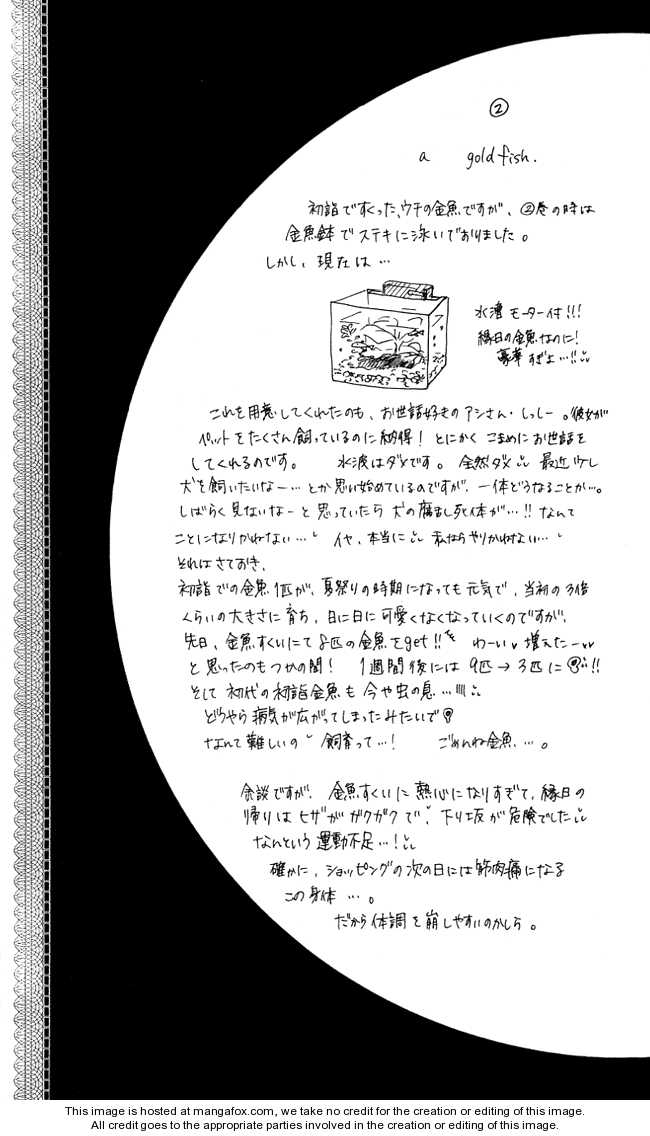 ②
a gold fish.
初詣ですくった、ウチの金魚ですが、②巻の時は
金魚鉢でステキに泳いでおりました。
しかし、現在は…
水濾モーター付!!!
縁日の金魚なのに!
豪華すぎよ…!!
これを用意してくれたのも、お世話好きのアシさん・しっしー。彼女が
ペットをたくさん飼っているのに納得! とにかくこまめにお世話を
してくれるのです。 水波はダメです。全然ダメ 最近少し
犬を飼いたいなー…とか思い始めているのですが、一体どうなることが…。
しばらく見ないなーと思っていたら犬の腐乱死体が…!! なんて
ことになりかねない… イヤ、本当に 私ならやりかねない…
それはさておき、
初詣での金魚1匹が、夏祭りの時期になっても元気で、当初の3倍
くらいの大きさに育ち、日に日に可愛くなくなっていくのですが、
先日、金魚すくいにて8匹の金魚をget!! わーい 増えたー
と思ったのもつかの間! 1週間後には9匹→3匹に!!
そして初代の初詣金魚も今や虫の息…
どうやら病気が広がってしまったみたいで
なんて難しいの 飼育って…! ごめんね金魚…。
余談ですが、金魚すくいに熱心になりすぎて、縁日の
帰りはヒザがガクガクで、下り坂が危険でした
なんという運動不足…!
確かに、ショッピングの次の日には筋肉痛になる
この身体…。
だから体調を崩しやすいのかしら。
This image is hosted at mangafox.com, we take no credit for the creation or editing of this image.
All credit goes to the appropriate parties involved in the creation or editing of this image.